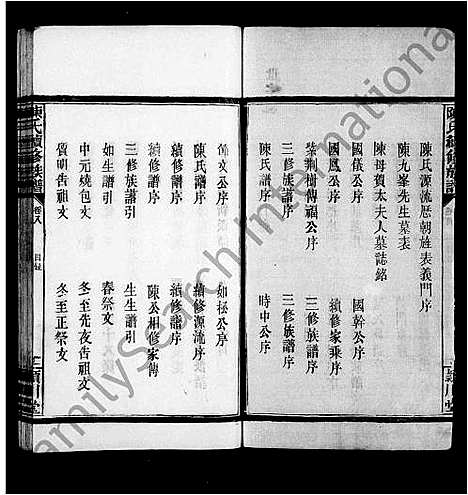 陳氏源流歷朝旌表義門序
陳九峯先生墓表
陳母賀太夫人墓誌銘
國儀公序
國幹公序
國鳳公序
續修家乘序
紫荆樹傳福公序
三修族譜序
三修族譜序
陳氏譜序
時中公序
文公序
如極公序
陳氏譜序
續修源流序
續修譜序
續修譜序
三修族譜引
陳公相修家傳
如生譜引
生生譜引
春祭文
中元燒包文
冬至先夜告祖文
質明告祖文
冬至正祭文
陳氏續修族譜
卷八
目錄
潁川堂
FamilySearch International